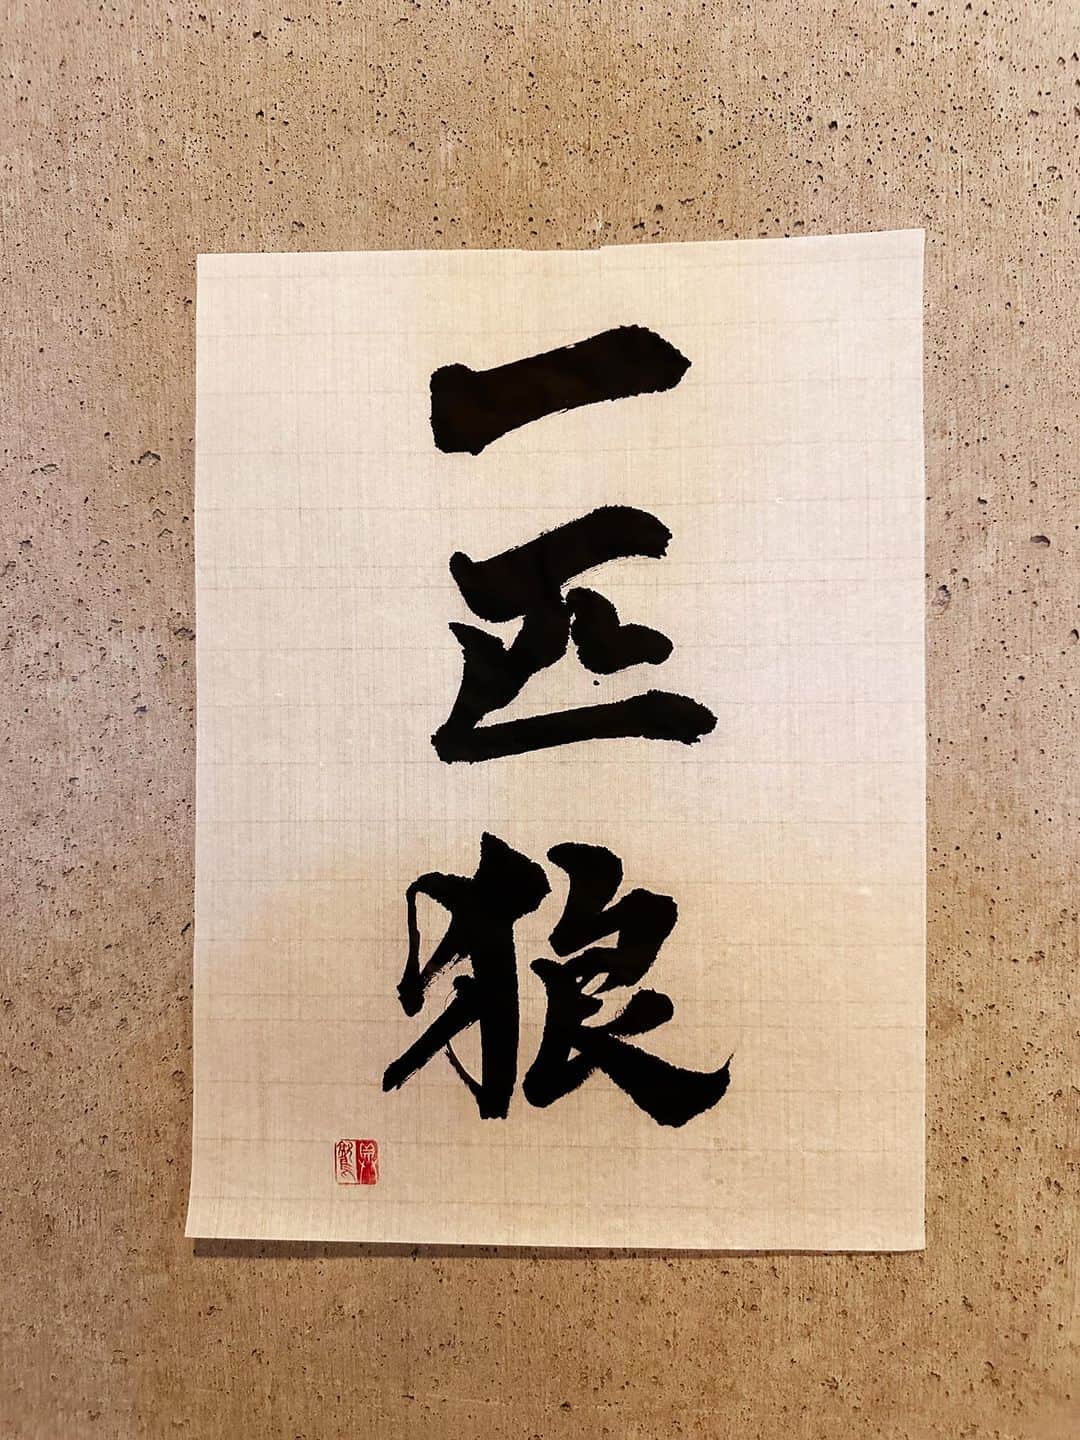 一匹狼